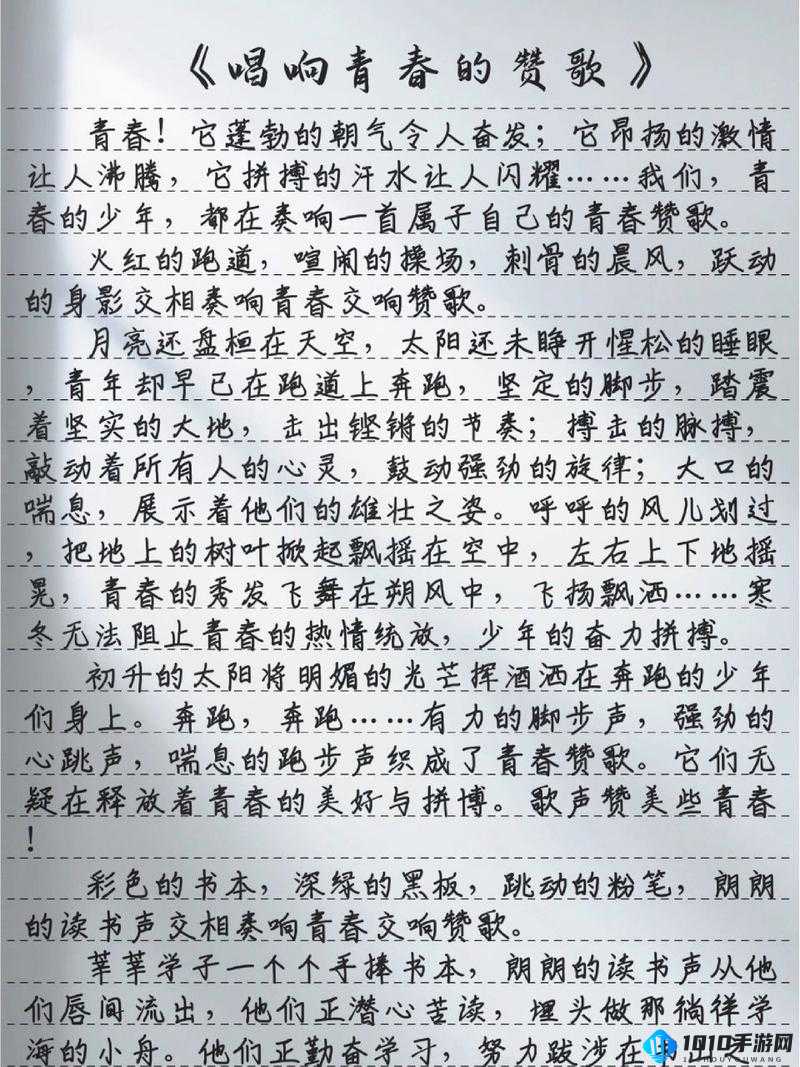 《唱响青春的赞歌》
青春！它蓬勃的朝气令人奋发；它昂扬的激情
让人沸腾，它拼搏的汗水让人闪耀……我们，青
春的少年，都在奏响一首属于自己的青春赞歌。
火红的跑道，喧闹的操场，刺骨的晨风，跃动
的身影交相奏响青春交响赞歌。
月亮还盘桓在天空，太阳还未睁开惺松的睡眼
，青年却早已在跑道上奔跑，坚定的脚步，踏震
着坚实的大地，击出铿锵的节奏；搏击的脉搏，
敲动着所有人的心灵，鼓动强劲的旋律；大口的
喘息，展示着他们的雄壮之姿。呼呼的风儿划过
，把地上的树叶掀起飘摇在空中，左右上下地摇
晃，青春的秀发飞舞在朔风中，飞扬飘洒……寒
冬无法阻止青春的热情统放，少年的奋力拼搏。
初升的太阳将明媚的光芒挥洒洒在奔跑的少年
们身上。奔跑，奔跑……有力的脚步声，强劲的
心跳声，喘息的跑步声织成了青春赞歌。它们无
疑在释放着青春的美好与拼博。歌声赞美些青春
！
彩色的书本，深绿的黑板，跳动的粉笔，朗朗
的读书声交相奏响青春交响赞歌。
莘莘学子一个个手捧书本，朗朗的读书声从他
们唇间流出，他们正潜心苦读，埋头做那徜徉学
海的小舟。他们正勤奋学习，努力跋涉在
1010手游网